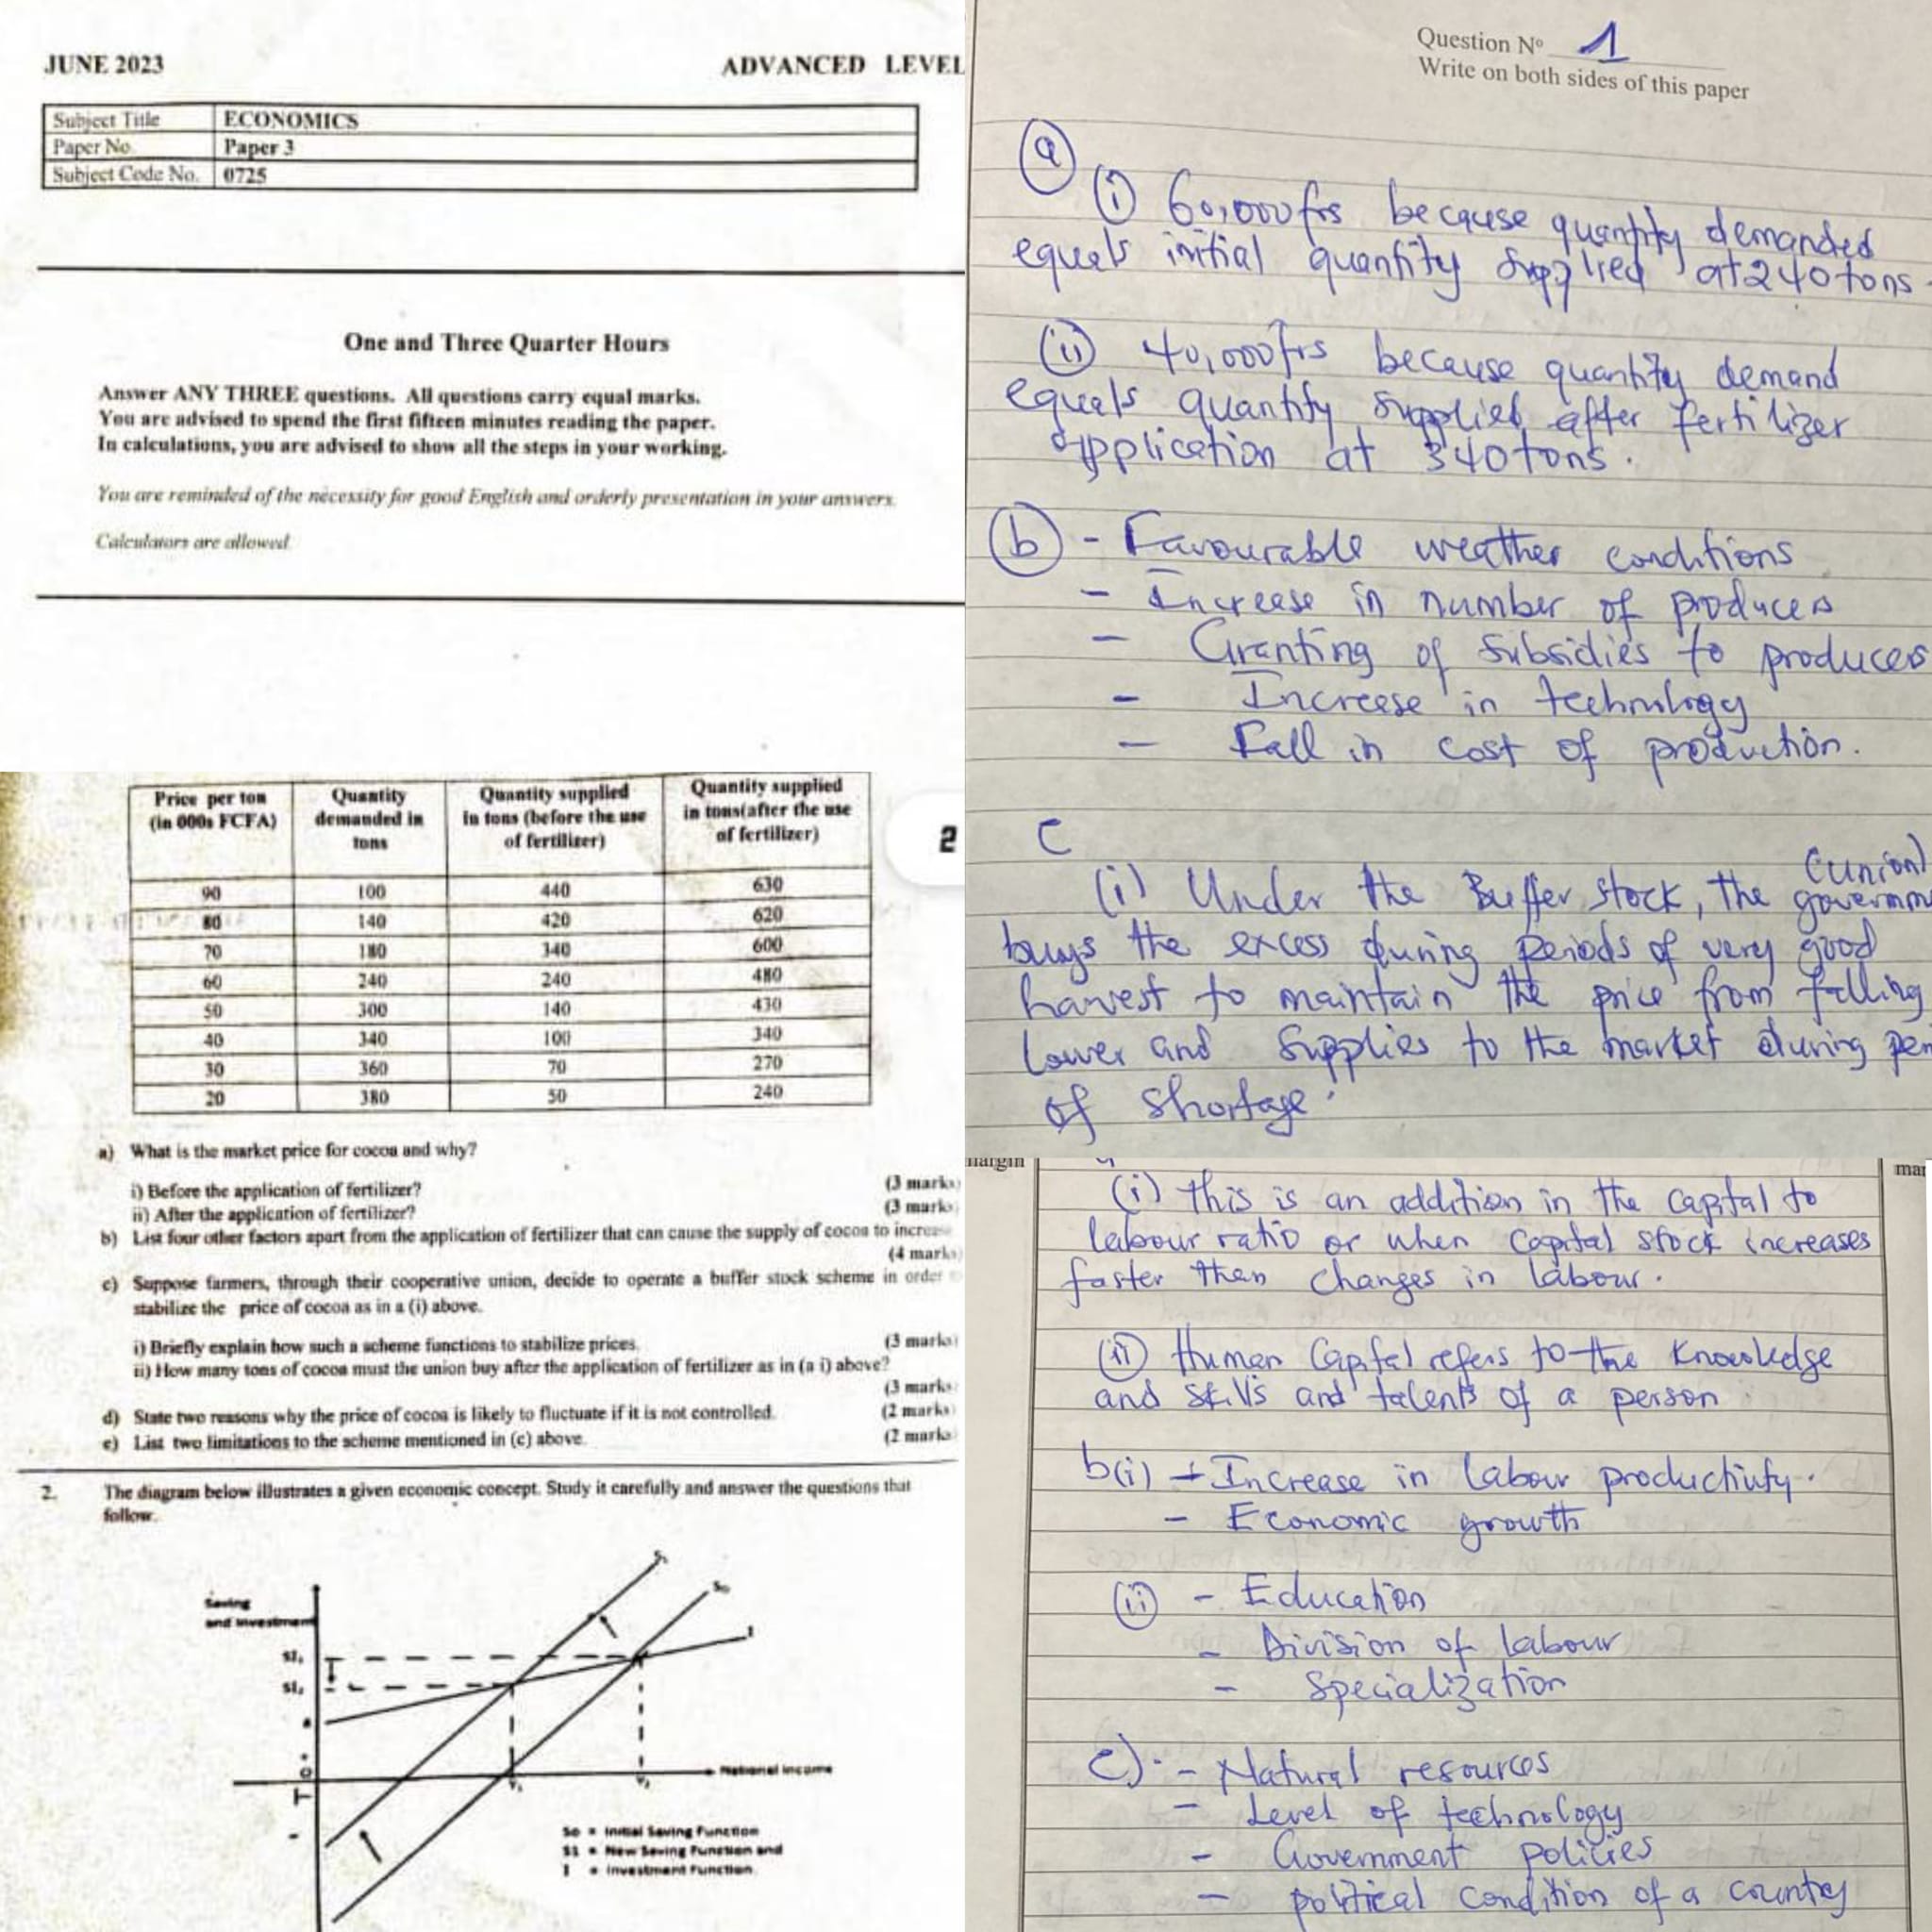 JUNE 2023 ADVANCED LEVEL
Subject Title ECONOMICS
Paper No. Paper 3
Subject Code No. 0725
One and Three Quarter Hours
Answer ANY THREE questions. All questions carry equal marks.
You are advised to spend the first fifteen minutes reading the paper.
In calculations, you are advised to show all the steps in your working.
You are reminded of the necessity for good English and orderly presentation in your answers.
Calculators are allowed
2
Price per ton (in 000s FCFA) Quantity demanded in tons Quantity supplied in tons (before the use of fertilizer) Quantity supplied in tons(after the use of fertilizer)
90 100 440 630
80 140 420 620
70 180 340 600
60 240 240 480
50 300 140 430
40 340 100 340
30 360 70 270
20 380 50 240
a) What is the market price for cocoa and why?
i) Before the application of fertilizer? (3 marks)
ii) After the application of fertilizer? (3 marks)
b) List four other factors apart from the application of fertilizer that can cause the supply of cocoa to increase
(4 marks)
c) Suppose farmers, through their cooperative union, decide to operate a buffer stock scheme in order
stabilize the price of cocoa as in a (i) above.
i) Briefly explain how such a scheme functions to stabilize prices. (3 marks)
ii) How many tons of cocoa must the union buy after the application of fertilizer as in (a i) above?
(3 marks
d) State two reasons why the price of cocoa is likely to fluctuate if it is not controlled. (2 marks)
e) List two limitations to the scheme mentioned in (c) above. (2 marks
2. The diagram below illustrates a given economic concept. Study it carefully and answer the questions that
follow.
Saving
and Investment
National income
So = Initial Saving Function
S1 = New Saving Function and
I = Investment Function
Question No 1
Write on both sides of this paper
a
(i) 60,000frs because quantity demanded
equals initial quantity supplied at 240tons.
(ii) 40,000frs because quantity demand
equals quantity supplied after fertilizer
application at 340tons.
b - Favourable weather conditions
- Increase in number of producers
- Granting of subsidies to producers
- Increase in technology
- Fall in cost of production.
C
(union)
(i) Under the Buffer stock, the governm
buys the excess during periods of very good
harvest to maintain the price from falling
lower and supplies to the market during per
of shortage.
margin mar
(i) this is an addition in the capital to
labour ratio or when capital stock increases
faster than changes in labour.
(ii) Human Capital refers to the knowledge
and skills and talents of a person
b(i) - Increase in labour productivity.
- Economic growth
(ii) - Education
- Division of labour
- Specialization
c) - Natural resources
- Level of technology
- Government policies
- political condition of a country